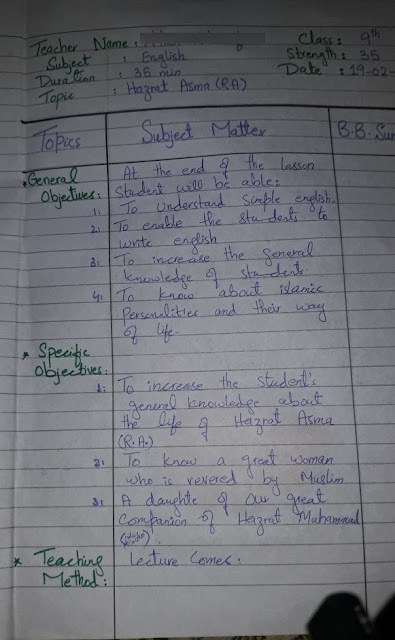 Teacher Name :
Class : 9th
Subject : English
Strength : 35
Duration : 35 min
Date : 19-02-
Topic : Hazrat Asma (R.A)
Topics
Subject Matter
B.B. Sum
* General Objectives:
At the end of the lesson
Student will be able:
1: To understand Simple english.
2: To enable the students to
write english
3: To increase the general
knowledge of students
4: To know about islamic
Personalities and their way
of life.
* Specific Objectives:
1: To increase the student's
general knowledge about
the life of Hazrat Asma
(R.A.)
2: To know a great woman
who is revered by Muslim
3: A daughte of our great
Companion of Hazrat Muhammad
* Teaching Method:
Lecture Comes: